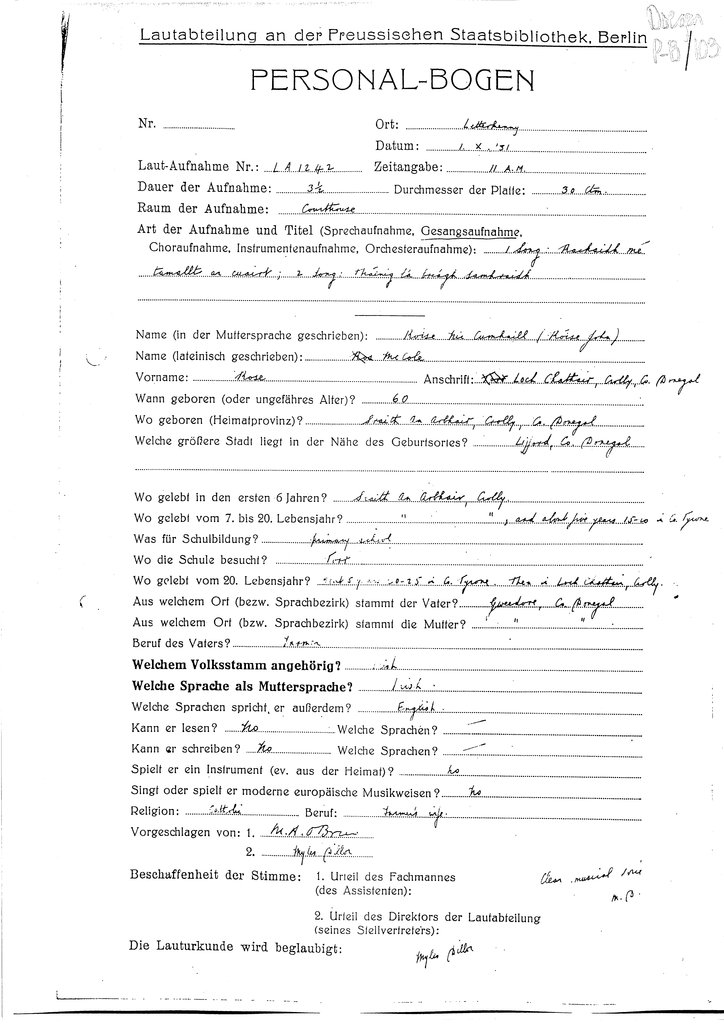 Doegen
P-8/103
Lautabteilung an der Preussischen Staatsbibliothek, Berlin
PERSONAL-BOGEN
Nr. Ort: Letterkenny
Datum: 1. X. '31
Laut-Aufnahme Nr.: LA 1242 Zeitangabe: 11 A.M.
Dauer der Aufnahme: 3½ Durchmesser der Platte: 30 Ctm.
Raum der Aufnahme: Courthouse
Art der Aufnahme und Titel (Sprechaufnahme, Gesangsaufnahme,
Choraufnahme, Instrumentenaufnahme, Orchesteraufnahme): 1 Song: Rachaidh mé
tamallt ar cuairt; 2 Song: Tháinig lá breágh samhraidh
Name (in der Muttersprache geschrieben): Róise Nic Cumhaill (Róise John)
Name (lateinisch geschrieben): McCole
Vorname: Rose Anschrift: Loch Chattair, Crolly, Co. Donegal
Wann geboren (oder ungefähres Alter)? 60
Wo geboren (Heimatprovinz)? Sraith an Arbhair, Crolly, Co. Donegal
Welche größere Stadt liegt in der Nähe des Geburtsortes? Lifford, Co. Donegal
Wo gelebt in den ersten 6 Jahren? Sraith an Arbhair, Crolly.
Wo gelebt vom 7. bis 20. Lebensjahr? " ", and about five years 15-20 in Co. Tyrone
Was für Schulbildung? primary school
Wo die Schule besucht? Torr
Wo gelebt vom 20. Lebensjahr? 20-25 in Co. Tyrone. Then in Loch Chattair, Crolly.
Aus welchem Ort (bezw. Sprachbezirk) stammt der Vater? Gweedore, Co. Donegal
Aus welchem Ort (bezw. Sprachbezirk) stammt die Mutter? " "
Beruf des Vaters? Farmer
Welchem Volksstamm angehörig? Irish
Welche Sprache als Muttersprache? Irish.
Welche Sprachen spricht er außerdem? English.
Kann er lesen? No Welche Sprachen? —
Kann er schreiben? No Welche Sprachen? —
Spielt er ein Instrument (ev. aus der Heimat)? No
Singt oder spielt er moderne europäische Musikweisen? No
Religion: Catholic Beruf: Farmer's wife.
Vorgeschlagen von: 1. M. A. O'Brien
2. Myles Dillon
Beschaffenheit der Stimme: 1. Urteil des Fachmannes Clear musical voice
(des Assistenten): M.D.
2. Urteil des Direktors der Lautabteilung
(seines Stellvertreters):
Die Lauturkunde wird beglaubigt: Myles Dillon